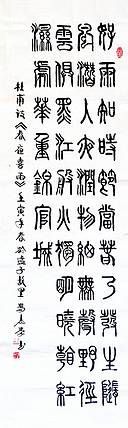 好雨知時節當春乃發生隨
風潛入夜潤物細無聲野徑
雲俱黑江船火獨明曉看紅
濕處華重錦官城
杜甫詩《春夜喜雨》壬寅年春於孟子故里